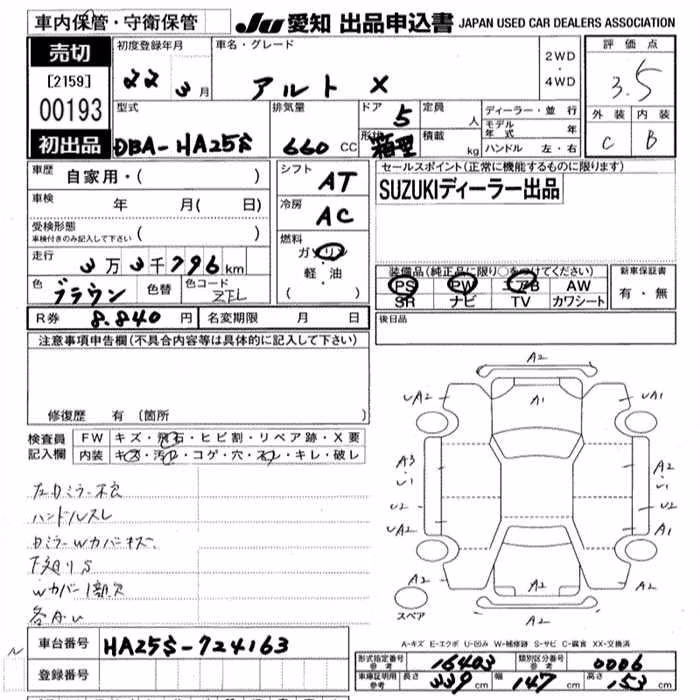 車内保管・守衛保管
JU 愛知 出品申込書 JAPAN USED CAR DEALERS ASSOCIATION
売切
[2159]
00193
初出品
初度登録年月
22 3月
車名・グレード
アルト X
2WD
・
4WD
評価点
3.5
外装 内装
C B
型式
DBA-HA25S
排気量
660 CC
ドア 5
形状 箱型
定員 人
積載 kg
ディーラー・並行
モデル年式 年
ハンドル 左・右
車歴 自家用・( )
車検 年 月( 日)
受検形態
車検付きのみ記入して下さい ( )
走行 3万3千796km
色 ブラウン 色替 色コード ZEL
シフト AT
冷房 AC
燃料
ガソリン
・
軽・油
( )
セールスポイント(正常に機能するものに限ります)
SUZUKIディーラー出品
装備品(純正品に限り○をつけてください)
PS PW エアB AW
SR ナビ TV カワシート
新車保証書
有・無
R券 8.840 円 名変期限 月 日
後日品
注意事項申告欄(不具合内容等は具体的に記入して下さい)
修復歴 有 (箇所 )
検査員記入欄
FW キズ・飛石・ヒビ割・リペア跡・X要
内装 キズ・汚レ・コゲ・穴・スレ・キレ・破レ
左Dミラー不良
ハンドルスレ
DミラーWカバーキズ
下廻りS
Wカバー1部欠
各AU
A2
UA2 A1 UA1
A3・U1 A2・U1
U2 U2
UA2 A1
A2 A1 A2
スペア A2
A-キズ E-エクボ U-凹み W-補修跡 S-サビ C-腐食 XX-交換済
車台番号 HA25S-724163
登録番号
形式指定番号 参考 16403 類別区分番号 参考 0006
車庫証明用 参考 長さ 339cm 幅 147cm 高さ 153cm